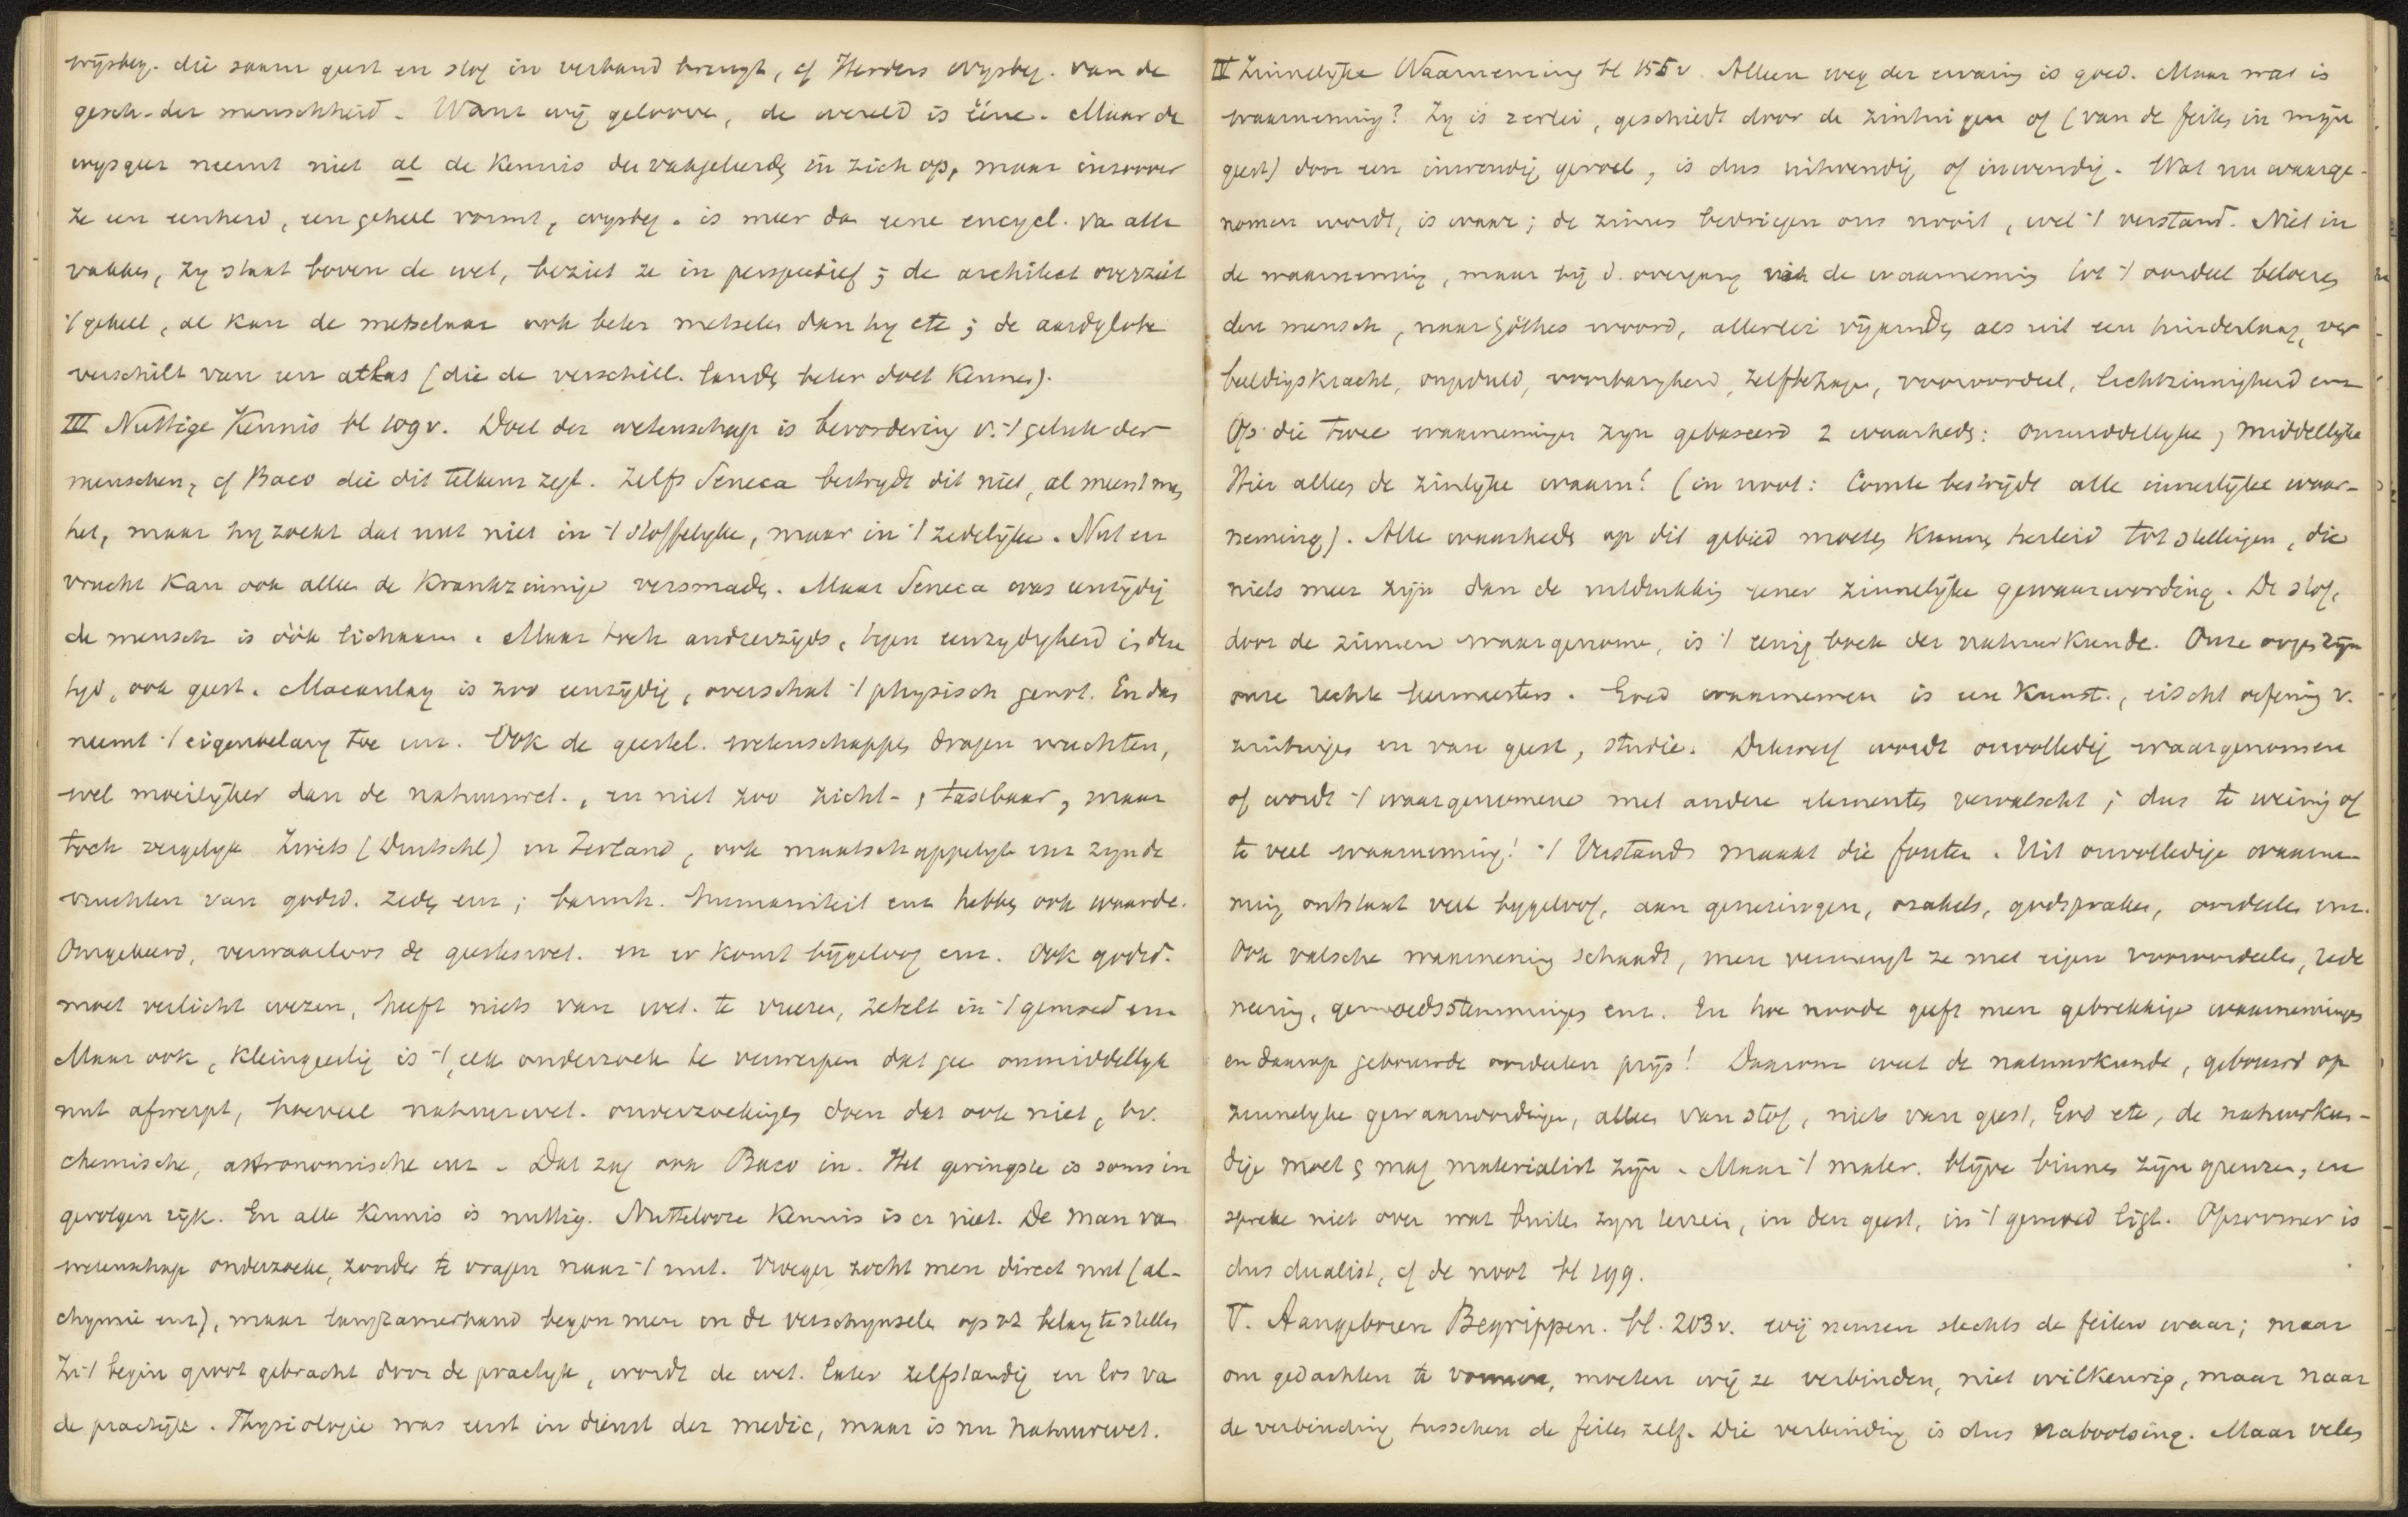 wijsbeg. die saam geest en stof in verband brengt, cf Herders wysbeg. van de
gesch. der menschheid. Want wij geloove, de wereld is ééne. Maar de
wysgeer neemt niet al de kennis der vakgeleerdn in zich op, maar inzoover
ze een eenheid, een geheel vormt, wysbeg. is meer da eene encycl. va alle
vakken, zy staat boven de wet, beziet ze in perspectief; de architect overziet
't geheel, al kan de metselaar ook beter metselen dan hy etc; de aardglobe
verschilt van een atlas (die de verschill. landn beter doet kennen).
III Nuttige Kennis bl 109 v. Doel der wetenschap is bevordering v. 't geluk der
menschen, cf Baco die dit telkens zegt. Zelfs Seneca bestrydt dit niet, al meent men
het, maar hy zoekt dat nut niet in 't stoffelyke, maar in 't zedelyke. Nut en
vrucht kan ook alleen de krankzinnige versmadn. Maar Seneca was eenzydig
de mensch is óók lichaam. Maar toch anderzijds, tegen eenzydigheid in dezen
tyd, ook geest. Macaulay is zoo eenzijdig, overschat 't physisch genot. En dan
neemt 't eigenbelang toe enz. Ook de geestel. wetenschappen dragen vruchten,
wel moeilyker dan de natuurwet., en niet zoo zicht- , tastbaar, maar
toch vergelyk Zwits (Deutschl) en Ierland, ook maatschappelyk enz zyn de
vruchten van godsd. zedn enz; barmh. humaniteit enz hebben ook waarde.
Omgekeerd, verwaarloos de geesteswet. en er komt bijgeloof enz. Ook godsd.
moet verlicht wezen, heeft niets van wet. te vreezen, zetelt in 't gemoed enz
Maar ook, kleingeestig is 't, elk onderzoek te verwerpen dat gee onmiddellyk
nut afwerpt, hoeveel natuurwet. onderzoekingen doen dat ook niet, bv.
chemische, astronomische enz. Dat zag ook Baco in. Het geringste is soms in
gevolgen rijk. En alle kennis is nuttig. Nuttelooze kennis is er niet. De man va
wetenschap onderzoeke, zonder te vragen naar 't nut. Vroeger zocht men direct nut (al-
chymie enz), maar langzamerhand begon men in de verschynselen op zich belang te stellen
In 't begin groot gebracht door de practyk, wordt de wet. later zelfstandig en los va
de practijk. Physiologie was eerst in dienst der medic, maar is nu natuurwet.
IV Zinnelijke Waarneming bl 155 v. Alleen weg der ervaring is goed. Maar wat is
waarneming? Zy is 2erlei, geschiedt door de zintuigen of (van de feiten in mijn
geest) door een inwendig gevoel, is dus uitwendig of inwendig. Wat nu waarge-
nomen wordt, is waar; de zinnen bedriegen ons nooit, wel 't verstand. Niet in
de waarneming, maar bij d. overgang van de waarneming tot 't oordeel beloeren
den mensch, naar Göthes woord, allerlei vijandn als uit een hinderlaag, ver
beeldingskracht, ongeduld, voorbarigheid, zelfbehagen, vooroordeel, lichtzinnigheid enz
Op die twee waarnemingen zyn gebaseerd 2 waarhedn: onmiddellyke, middellyke
Hier alleen de zinlijke waarn! (in noot: Comte bestrijdt alle innerlijke waar-
neming). Alle waarhedn op dit gebied moeten kunnen herleid tot stellingen, die
niets meer zijn dan de uitdrukking eener zinnelijke gewaarwording. De stof,
door de zinnen waargenome, is 't eenig boek der natuurkunde. Onze oogen zijn
onze rechte leermeesters. Goed waarnemen is een kunst, eischt oefening v.
zintuigen en van geest, studie. Dikwerf wordt onvolledig waargenomen
of wordt 't waargenomene met andere elementen vervalscht; dus te weinig of
te veel waarneming! 't Verstand maakt die fouten. Uit onvolledige waarne-
ming ontstaat veel bygeloof, aan genezingen, orakels, godspraken, oordeelen enz.
Ook valsche waarneming schaadt, men vermengt ze met eigen vooroordeelen, rede
neering, gemoedsstemmingen enz. En hoe noode geeft men gebrekkige waarnemingen
en daarop gebouwde oordeelen prijs! Daarom weet de natuurkunde, gebouwd op
zinnelyke gewaarwordingen, alleen van stof, niets van geest, God etc, de natuurkun-
dige moet , mag materialist zijn. Maar 't mater. blijve binnen zijn grenzen, en
spreke niet over wat buiten zyn terrein, in den geest, in 't gemoed ligt. Opzoomer is
dus dualist, cf de noot bl 199.
V. Aangeboren Begrippen. bl. 203 v. wij nemen slechts de feiten waar; maar
om gedachten te vormen, moeten wij ze verbinden, niet willkeurig, maar naar
de verbinding tusschen de feiten zelf. Die verbinding is dus nabootsing. Maar velen